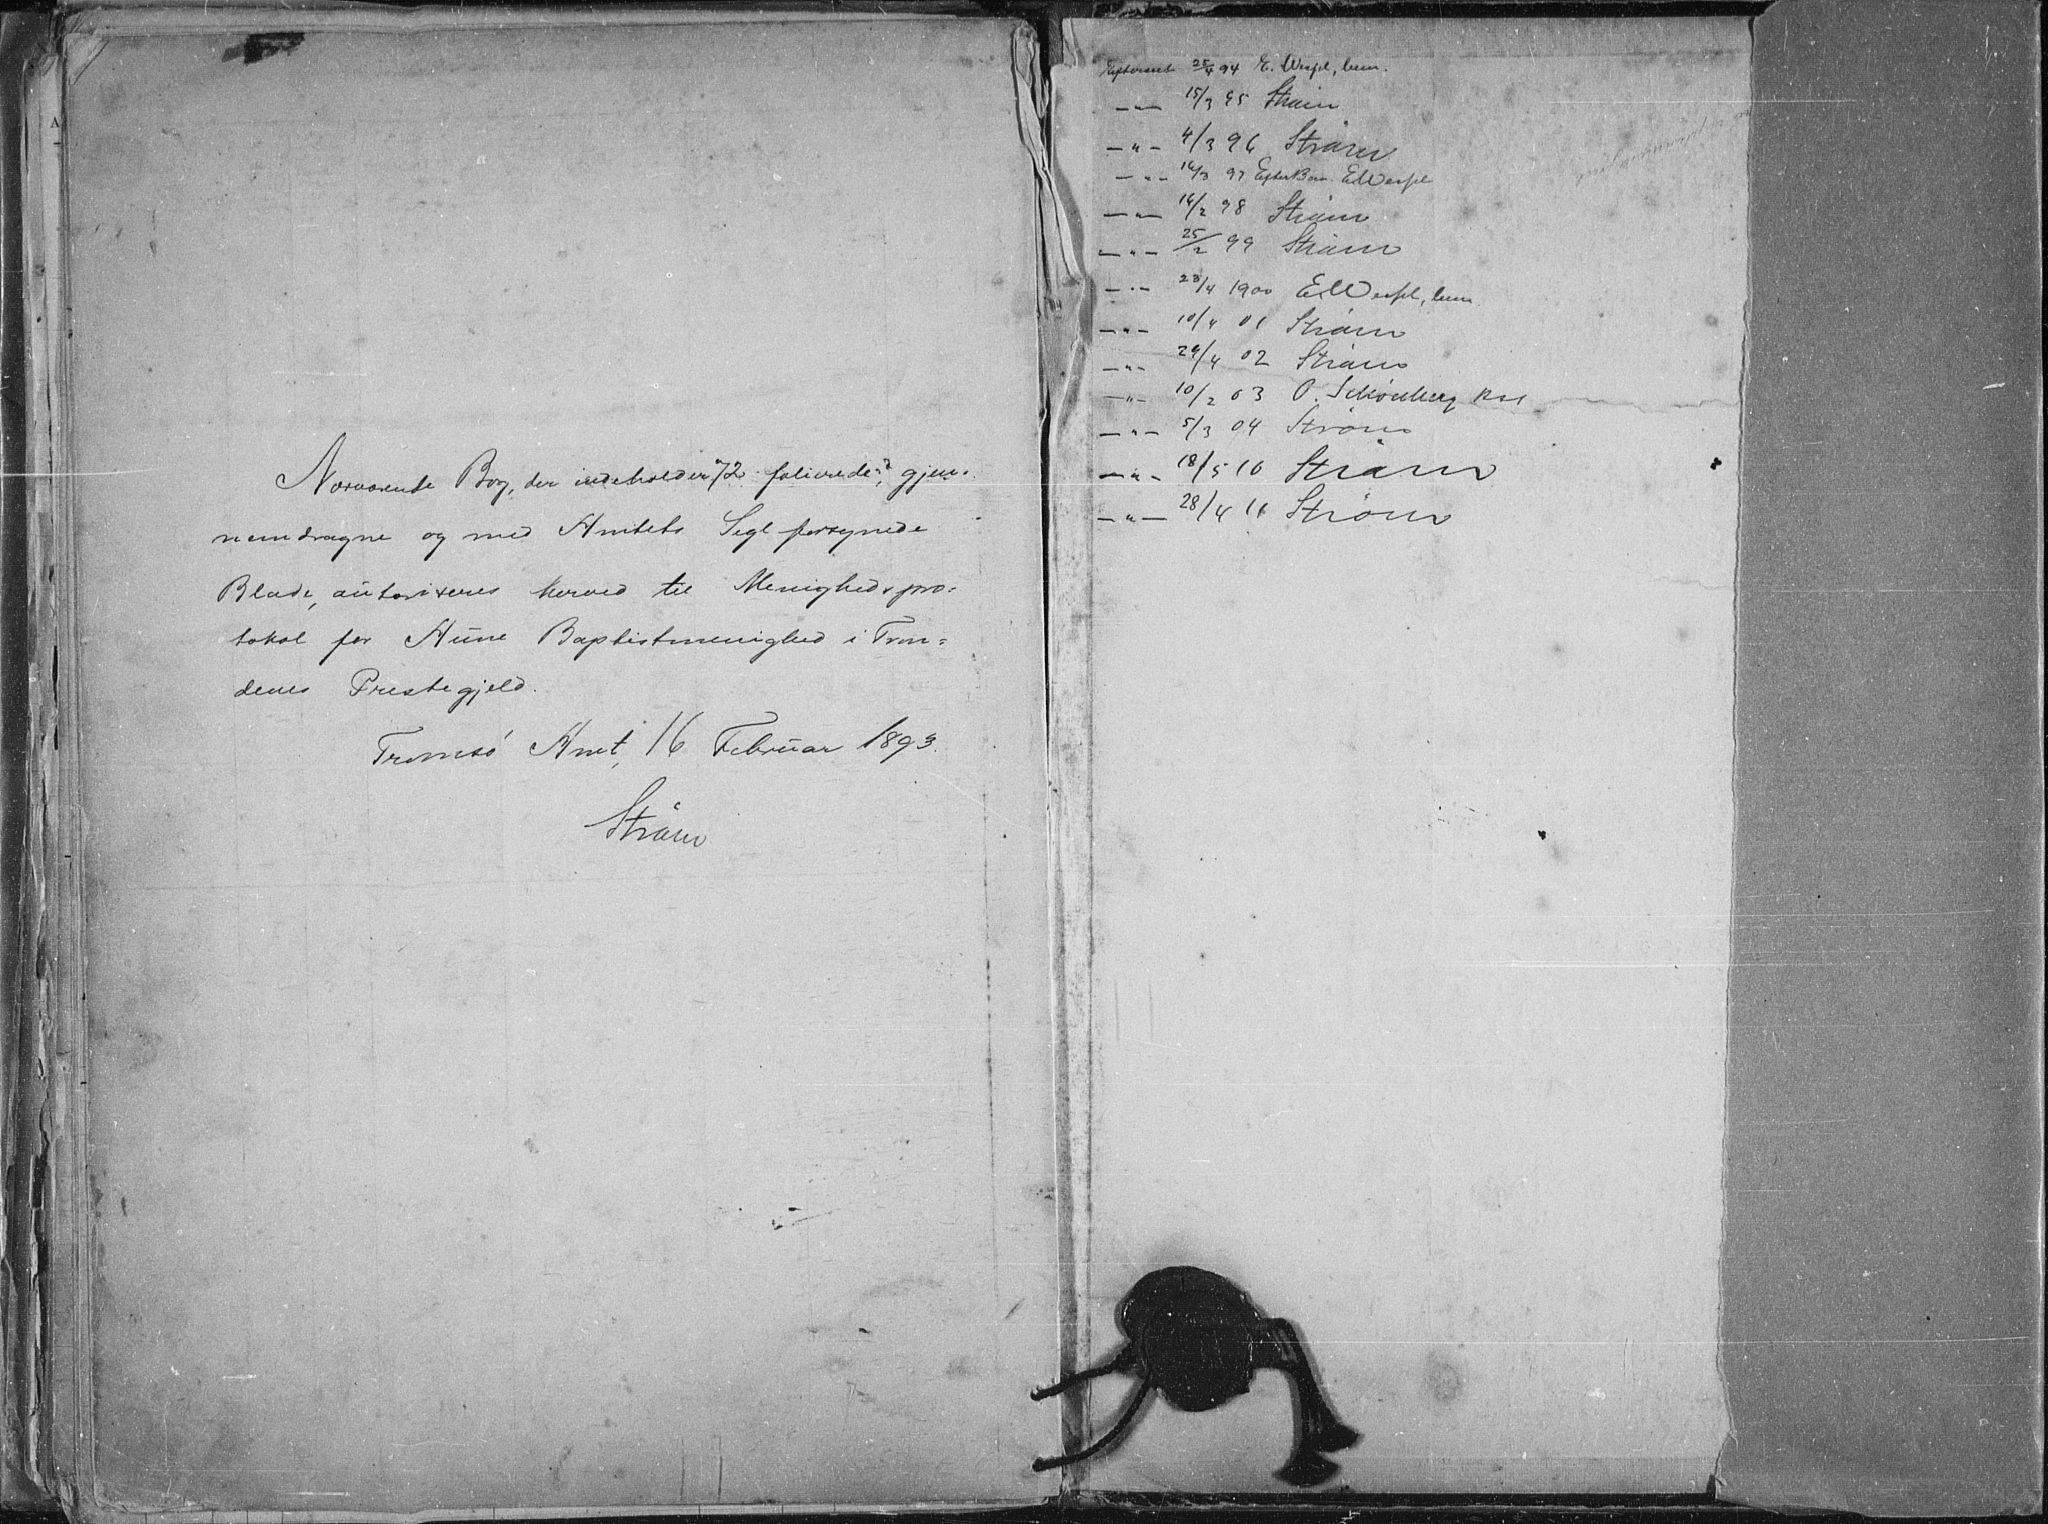 Nærværende Bog, der indeholder 72 folierede, gjen-
nemdragne og med Amtets Segl forsynede
Blade, autoriseres herved til Menighedspro-
tokol for Aune Baptistmenighed i Tron-
denes Prestegjeld.
Tromsö Amt, 16 Februar 1893.
Ström
Efterseet 25/4 94 E. Wessel, bem.
—"— 15/3 95 Ström
—"— 4/3 96 Ström
—"— 16/3 97 Efter Bem. E Wessel
—"— 16/2 98 Ström
—"— 25/2 99 Ström
—"— 23/4 1900 E Wessel, bem
—"— 10/4 01 Ström
—"— 29/4 02 Ström
—"— 10/2 03 O. Schönberg
—"— 5/3 04 Ström
—"— 18/5 10 Ström
—"— 28/4 11 Ström